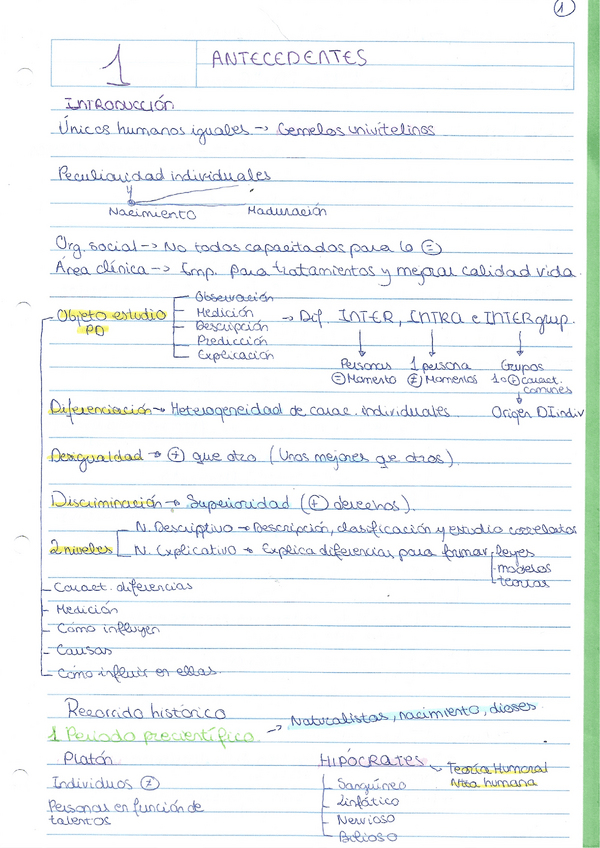 1
1 ANTECEDENTES
INTRODUCCIÓN
Únicos humanos iguales → Gemelos univitelinos
Peculiaridad individuales
Nacimiento Maduración
Org. social → No todos capacitados para lo =
Área clínica → Imp. para tratamientos y mejorar calidad vida.
Objeto estudio PD
Observación
Medición
Descripción
Predicción
Explicación
→ Dif. INTER, INTRA e INTERgrup.
Personas 1 persona Grupos
= Momento ≠ Momentos 1 o + caract. comunes
Diferenciación → Heterogeneidad de carac. individuales Origen DIindiv
Desigualdad → + que otro (Unos mejores que otros).
Discriminación → Superioridad (+ derechos).
2 niveles
N. Descriptivo → Descripción, clasificación y estudio correlatos
N. Explicativo → Explica diferencias para formar leyes
modelos
teorías
Caract. diferencias
Medición
Cómo influyen
Causas
Cómo influir en ellas.
Recorrido histórico
1 Periodo precientífico → Naturalistas, nacimiento, dioses
Platón HIPÓCRATES → Teoría Humoral
Individuos ≠ Ntza humana
Personas en función de talentos
Sangúneo
Linfático
Nervioso
Bilioso